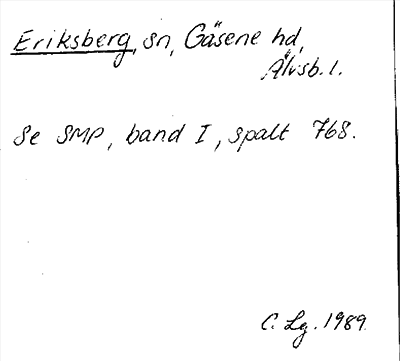 Eriksberg, sn, Gäsene hd,
Älvsb. l.
Se SMP, band I, spalt 768.
C. Lg. 1989.